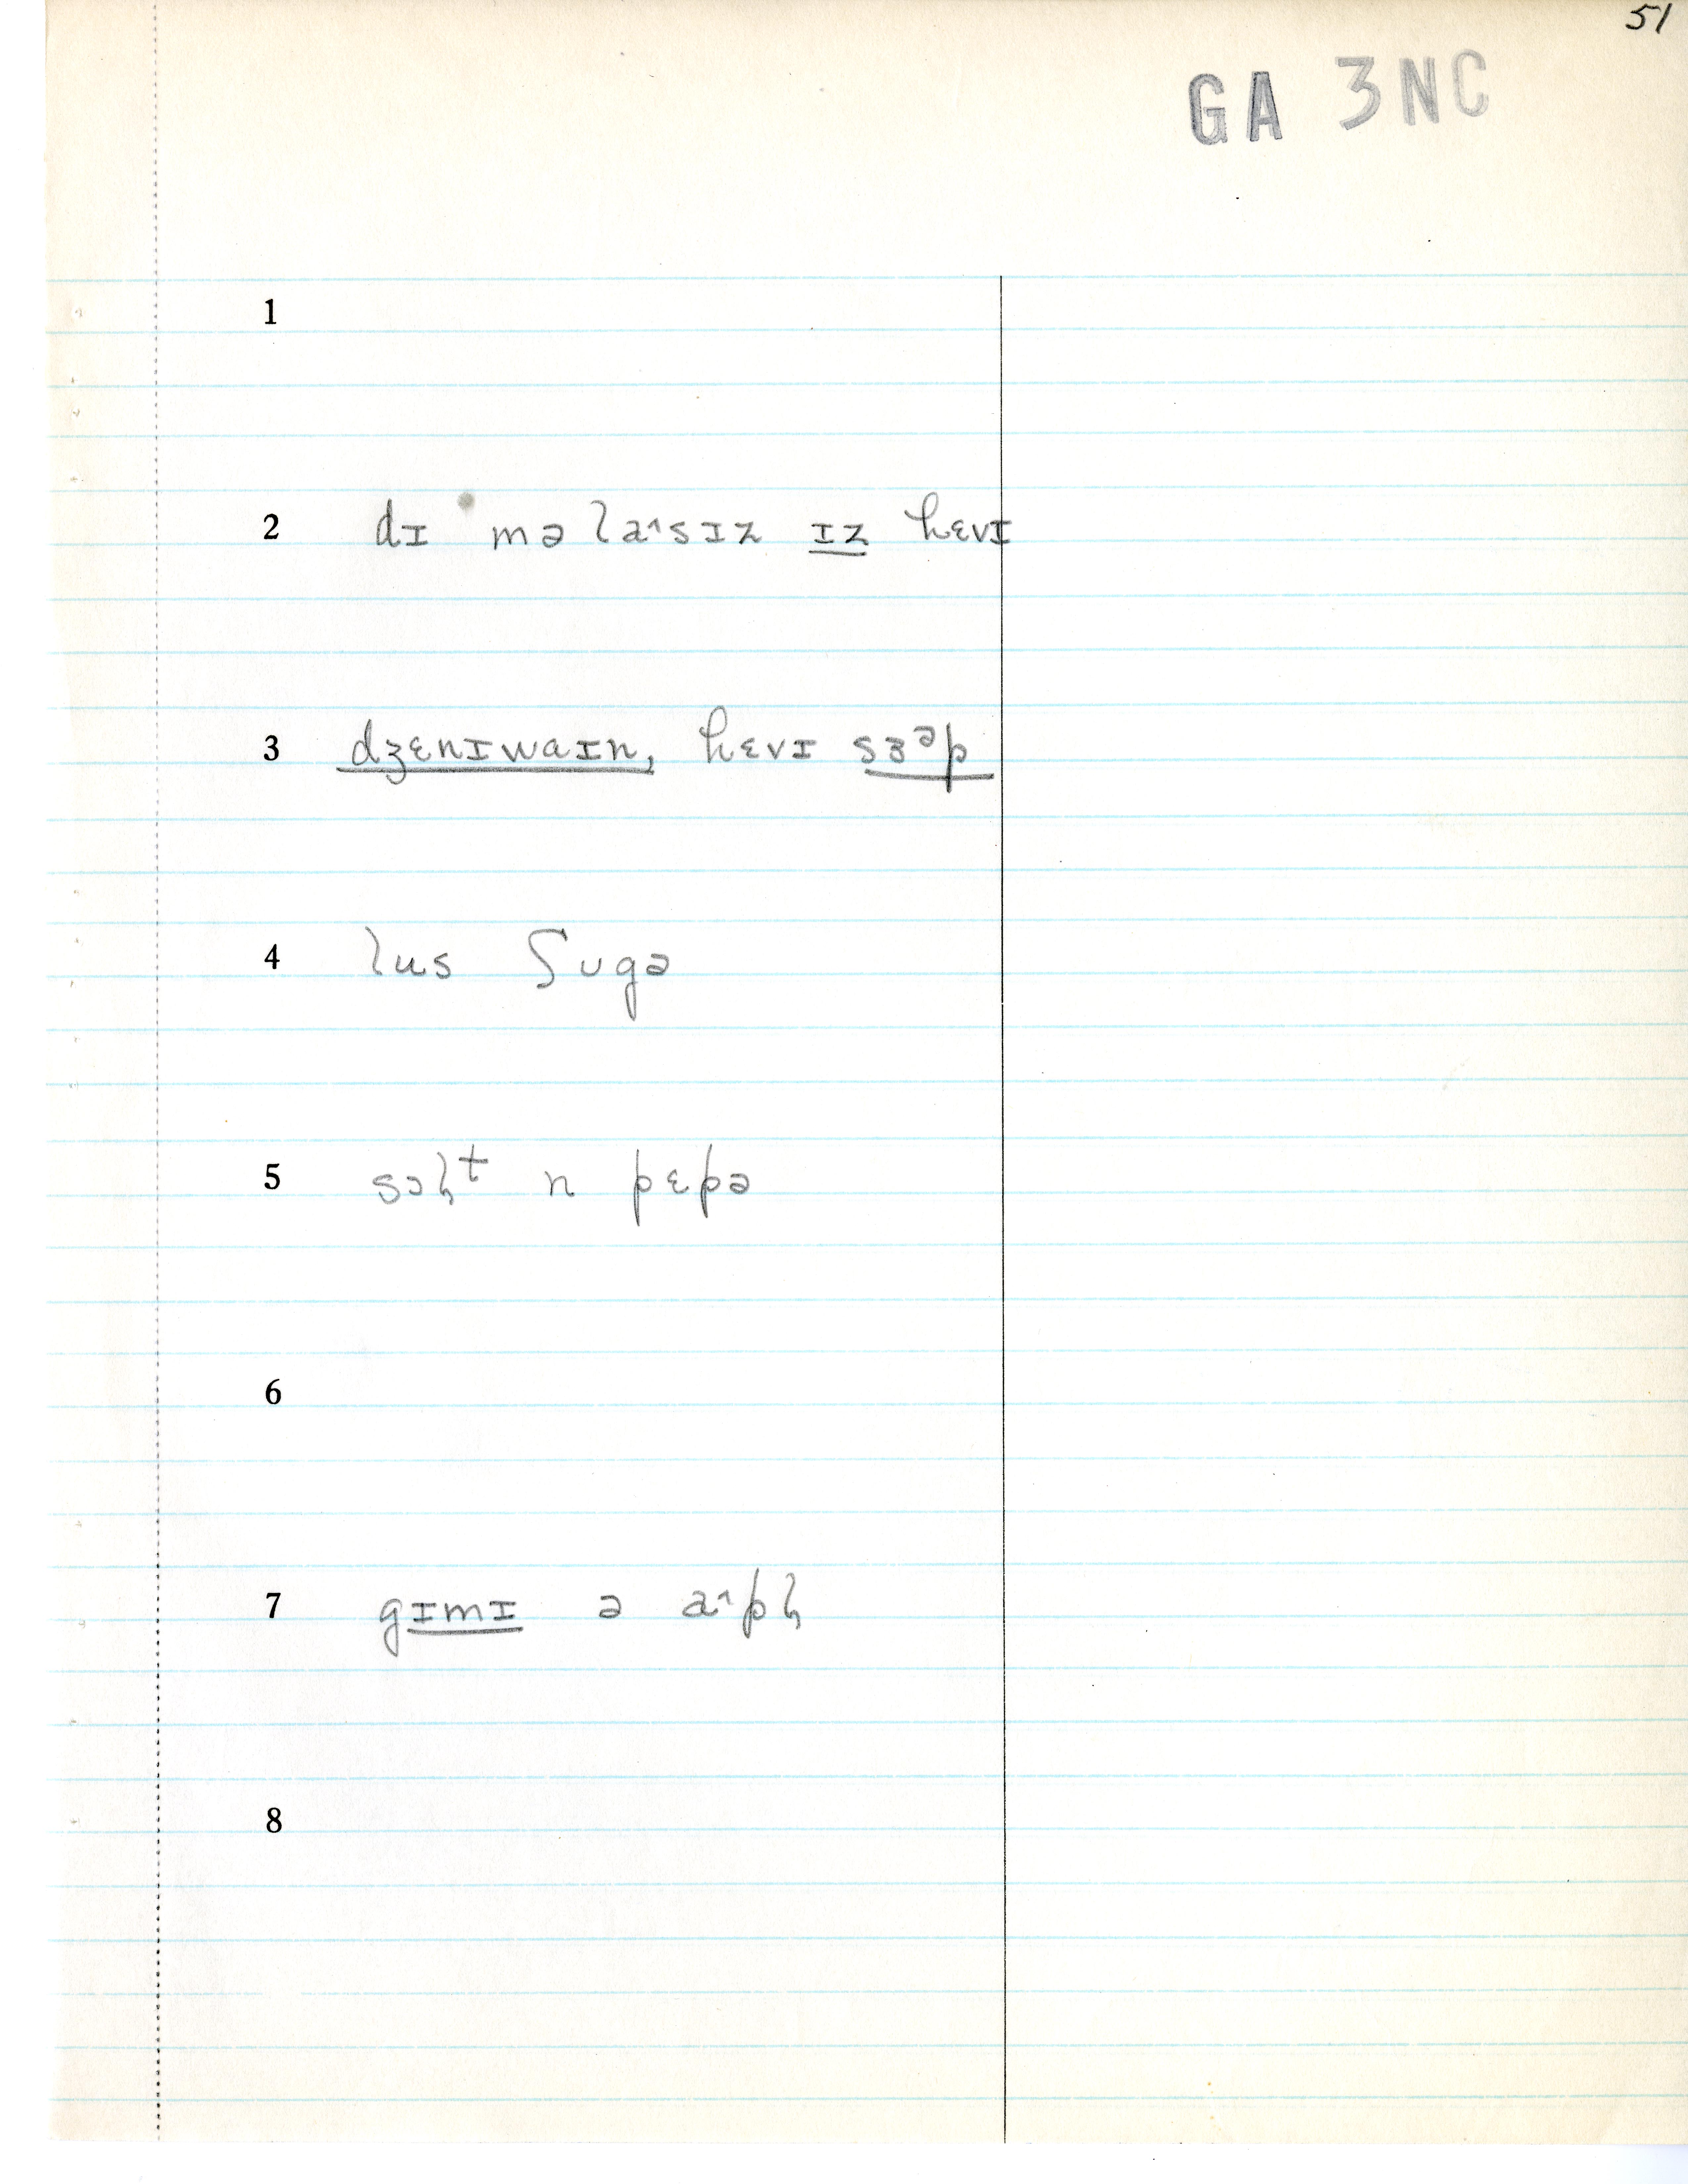 51
GA 3NC
1
2 dɪ məlaˆsɪz ɪz hɛvɪ
3 dʒɛnɪwaɪn, hɛvɪ sɜᵊp
4 lus ʃugə
5 sɔɫᵗ n pɛpə
6
7 gɪmɪ ə aˆpɫ
8